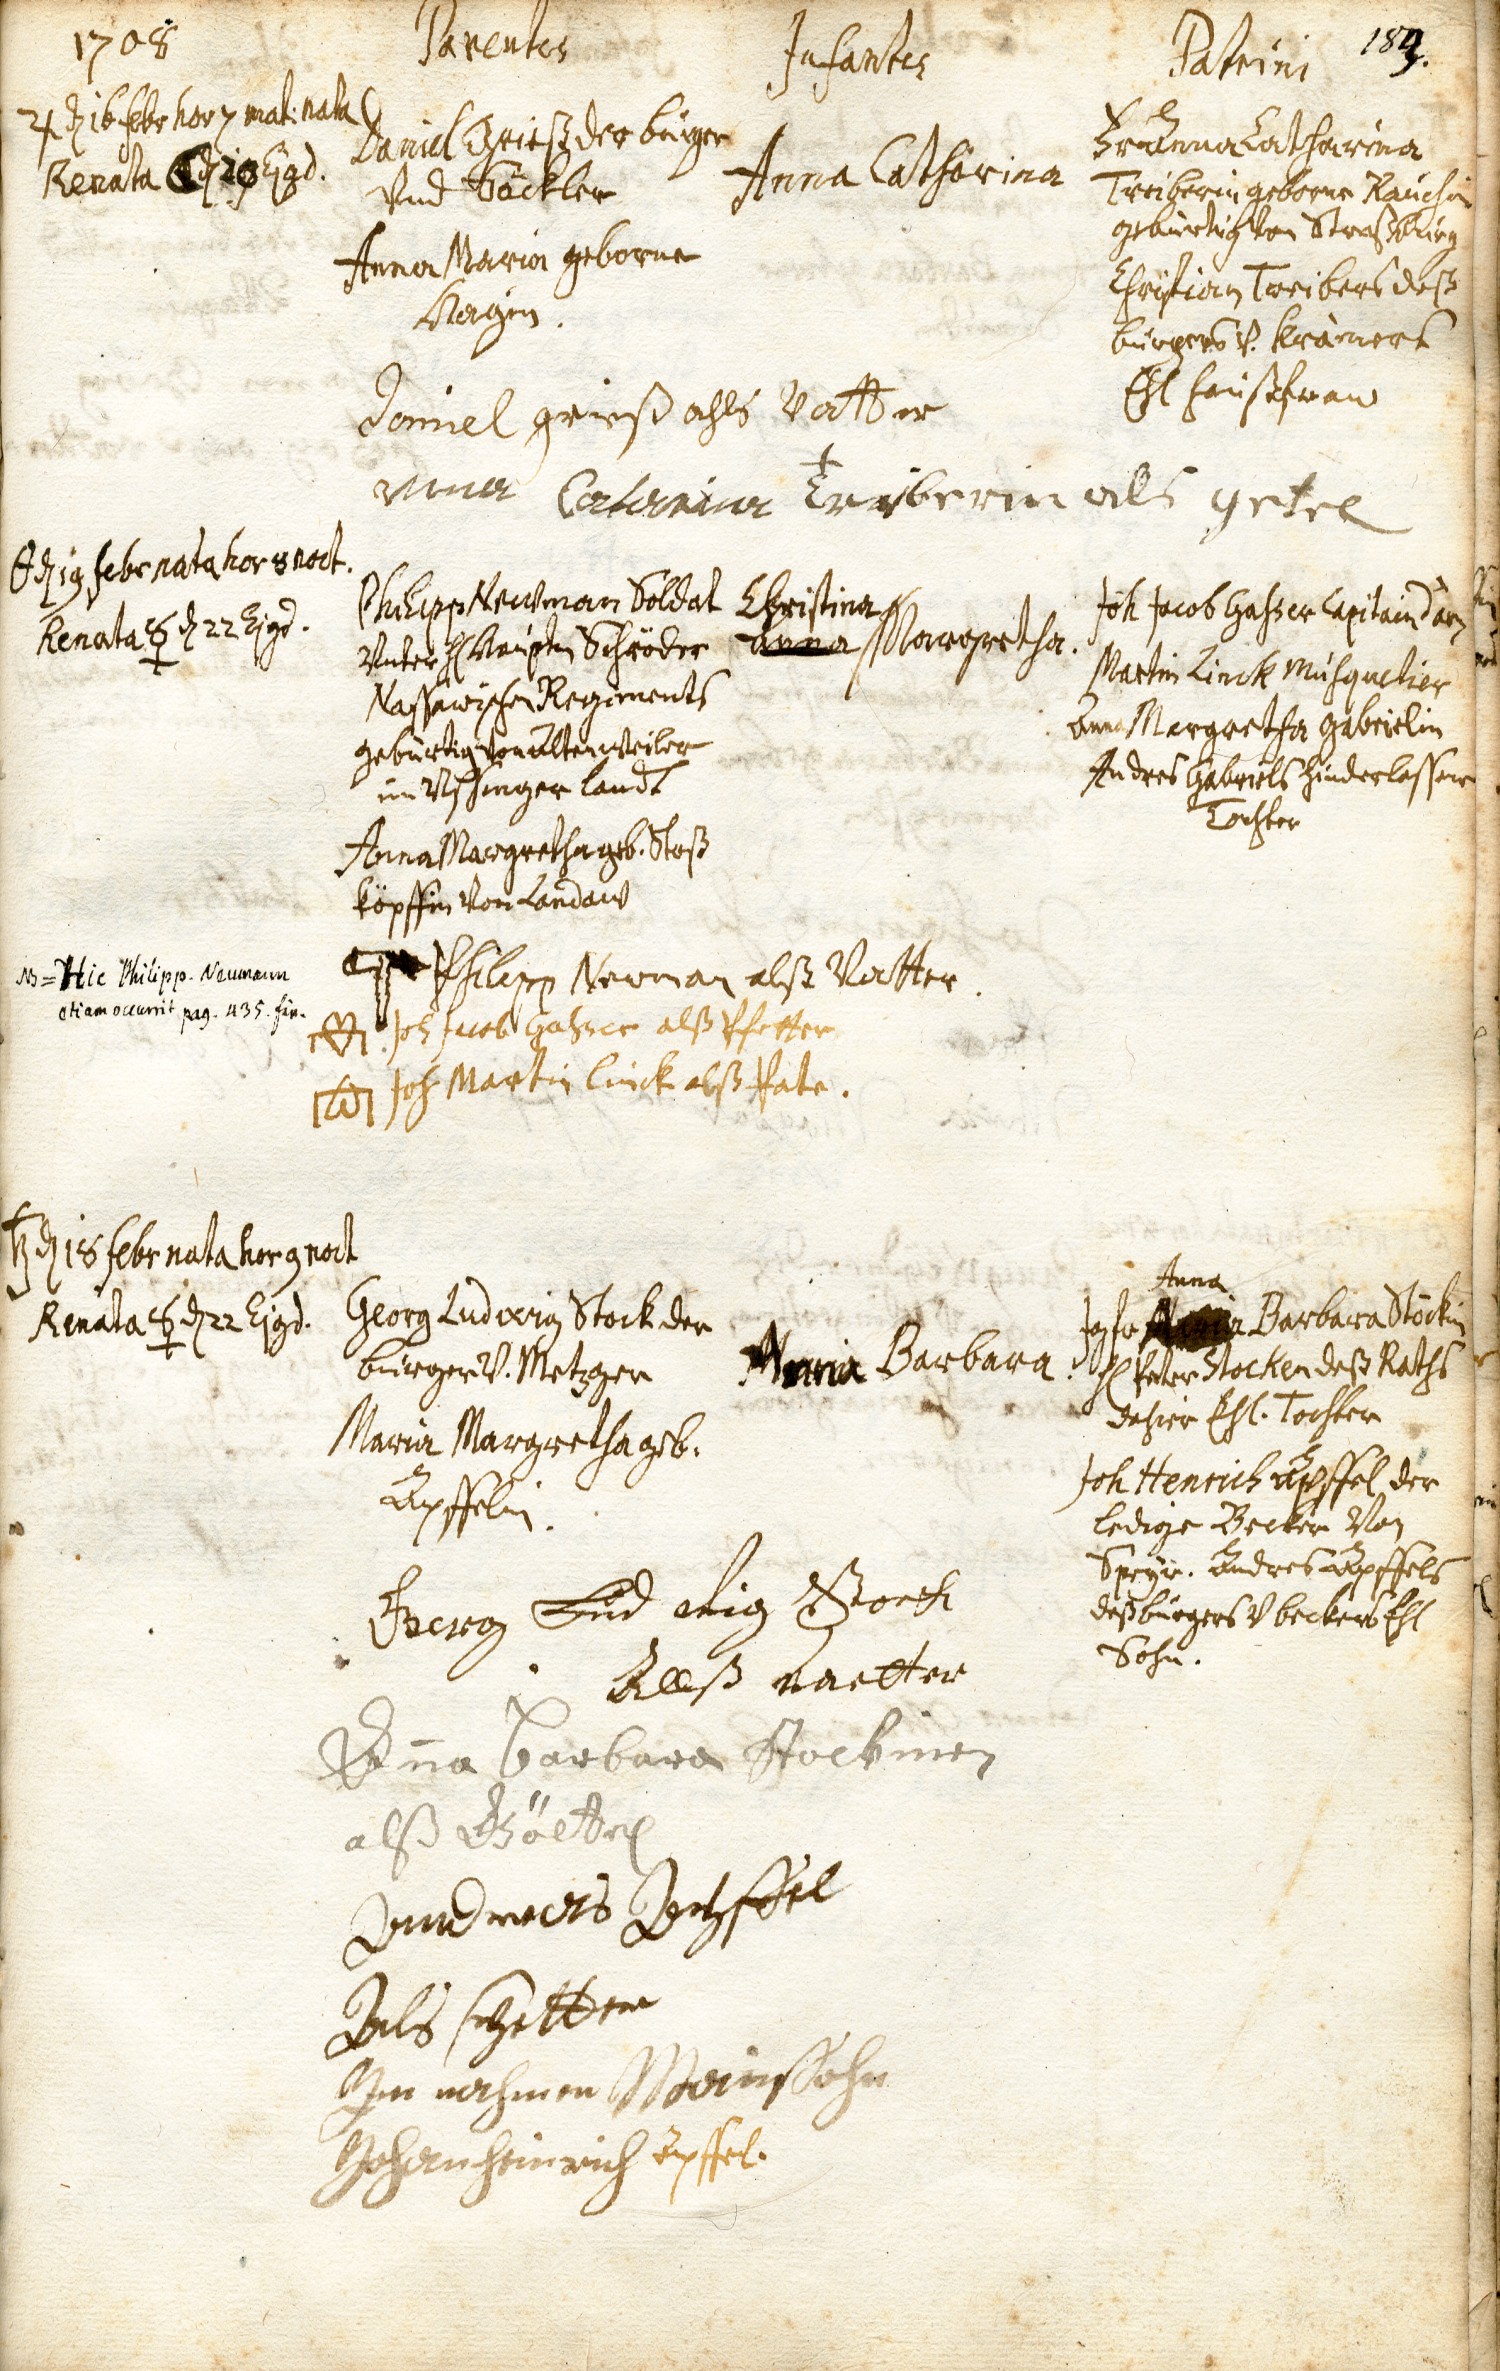 1708 Parentes Infantes Patrini 189.
♃ d 16 febr hor 7 mat: nata
Renata d 19 Ejsd.
Daniel Grieß der burger
Vnd Säckler
Anna Maria geborne
Hagin.
Anna Catharina
Fr Anna Catharina
Treiberin geborne Rauchin
gebürtig Von Straßburg
Christian Treibers deß
burgers v. Krämers
Ehl Haußfraw
Daniel grieß ahls Vatter
Catarina Treiberin als getel
d 19 febr nata hor 8 noct.
Renata ☿ d 22 Ejsd.
Philipp Newman Soldat
Vnter H Hauptm Schröder
Nassawischen Regiments
gebürtig von Altenweiler
im Vssinger landt
Anna Margretha geb. Stoß
köpffin Von Landaw
Christina
Anna Margretha.
Joh Jacob Hasser Capitain d'arm
Martin Linck Musquetier
Anna Margretha Gabrielin
Andres Gabriels hinderlassene
Tochter
NB = Hic Philipp. Neumann
etiam occurrit pag. 435. fin.
Philipp Newman alß Vatter.
Joh Jacob Hasser alß Pfetter
Joh Martin Linck alß Pate.
♄ d 18 febr nata hor 9 noct
Renata ☿ d 22 Ejsd.
Georg Ludwig Stock der
burger V. Metzger
Maria Margretha geb.
Äpffelin.
Maria Barbara.
Anna
Jgfr Barbara Stöckin
H Peter Stocken deß Raths
dahier Ehl. Tochter
Joh Henrich Äpffel der
ledige Becker Von
Speyr. Andres Äpffels
deß burgers V beckers Ehl
Sohn.
Georg Lud wig Stock
Allß vaetter
Anna barbara Stockinen
alß Göettel
Anndreas Apffel
Als Pfetter
Im nahmen Meins Sohn
Johan heinrich Äpffel.